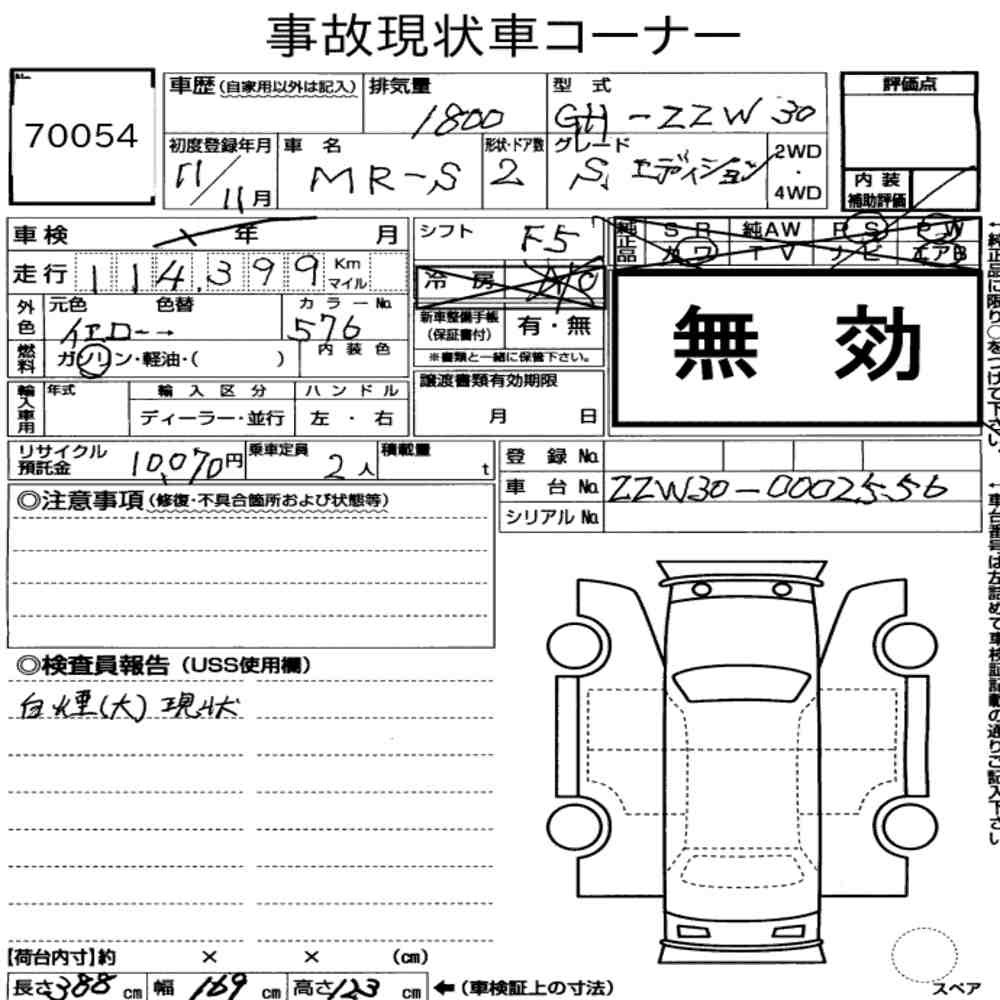 事故現状車コーナー
70054
車歴(自家用以外は記入) 排気量 1800 型式 GH-ZZW30 評価点
初度登録年月 11/11月 車名 MR-S 形状・ドア数 2 グレード S. エディション 2WD・4WD
内装補助評価
車検 年 月
シフト F5
純正品 SR 純AW PS PW
カワ TV ナビ エアB
走行 114,399 Km マイル
冷房 A/C
外色 元色 イエロー→ 色替 カラーNo. 576
内装色
燃料 ガソリン・軽油・( )
新車整備手帳(保証書付) 有・無
※書類と一緒に保管下さい。
無効
輸入車用 年式 輸入区分 ハンドル
ディーラー・並行 左・右
譲渡書類有効期限
月 日
リサイクル預託金 10,070円 乗車定員 2人 積載量 t
登録No.
車台No. ZZW30-0002556
シリアルNo.
◎注意事項(修復・不具合箇所および状態等)
◎検査員報告(USS使用欄)
白煙(大) 現状
【荷台内寸】約 × × (cm)
長さ388cm 幅169cm 高さ123cm ←(車検証上の寸法)
スペア
←純正品に限り○をつけて下さい。
←車台番号は左詰めで車検証記載の通りご記入下さい。